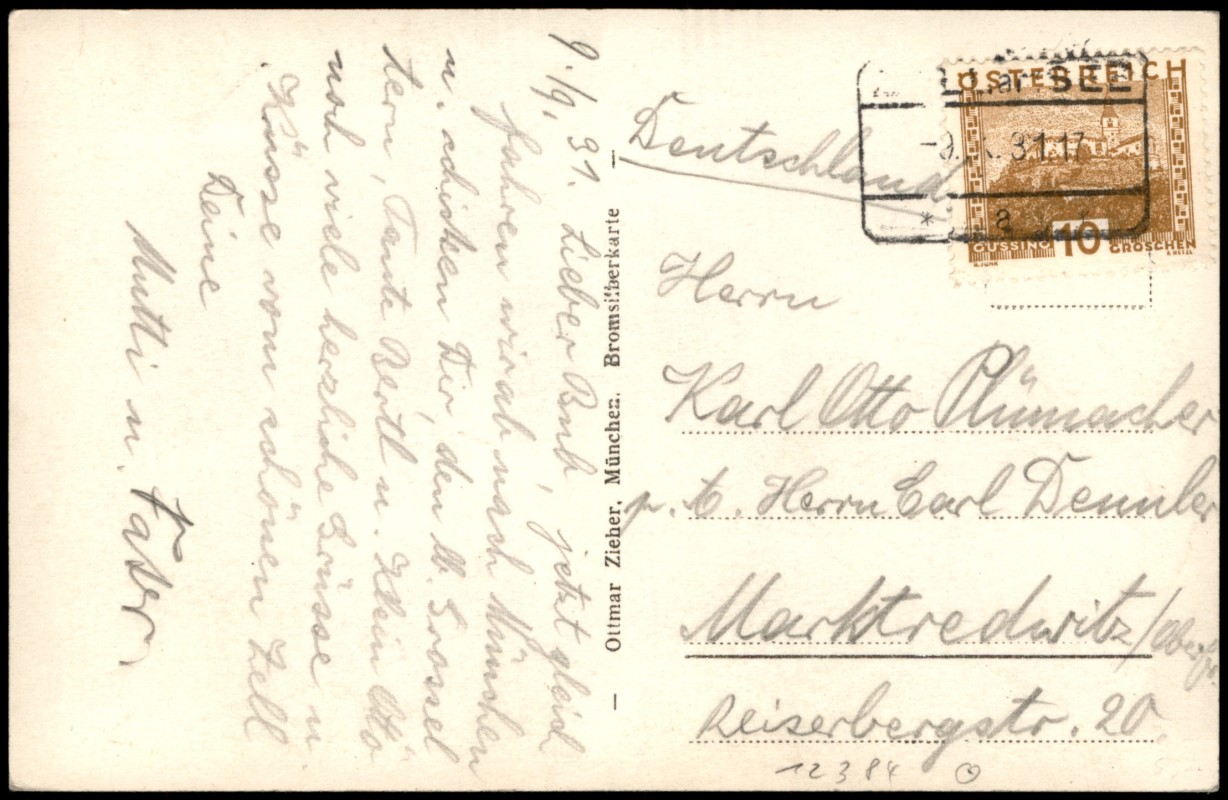 9./9. 31. Lieber Bub, jetzt gleich
fahren wir ab nach München
u. schicken Dir, den lb. Grossel
tern, Tante Bertl u. Klein Otto
noch viele herzliche Grüsse u
Küsse vom schönen Zell
Deine
Mutti u. Vater
– Ottmar Zieher, München. Bromsilberkarte –
ÖSTERREICH
GÜSSING 10 GROSCHEN
SEE
-9. 31.17
* 8
Deutschland.
Herrn
Karl Otto Plümacher
p. A. Herrn Carl Dennler
Marktredwitz/
Reiserbergstr. 20.
12384